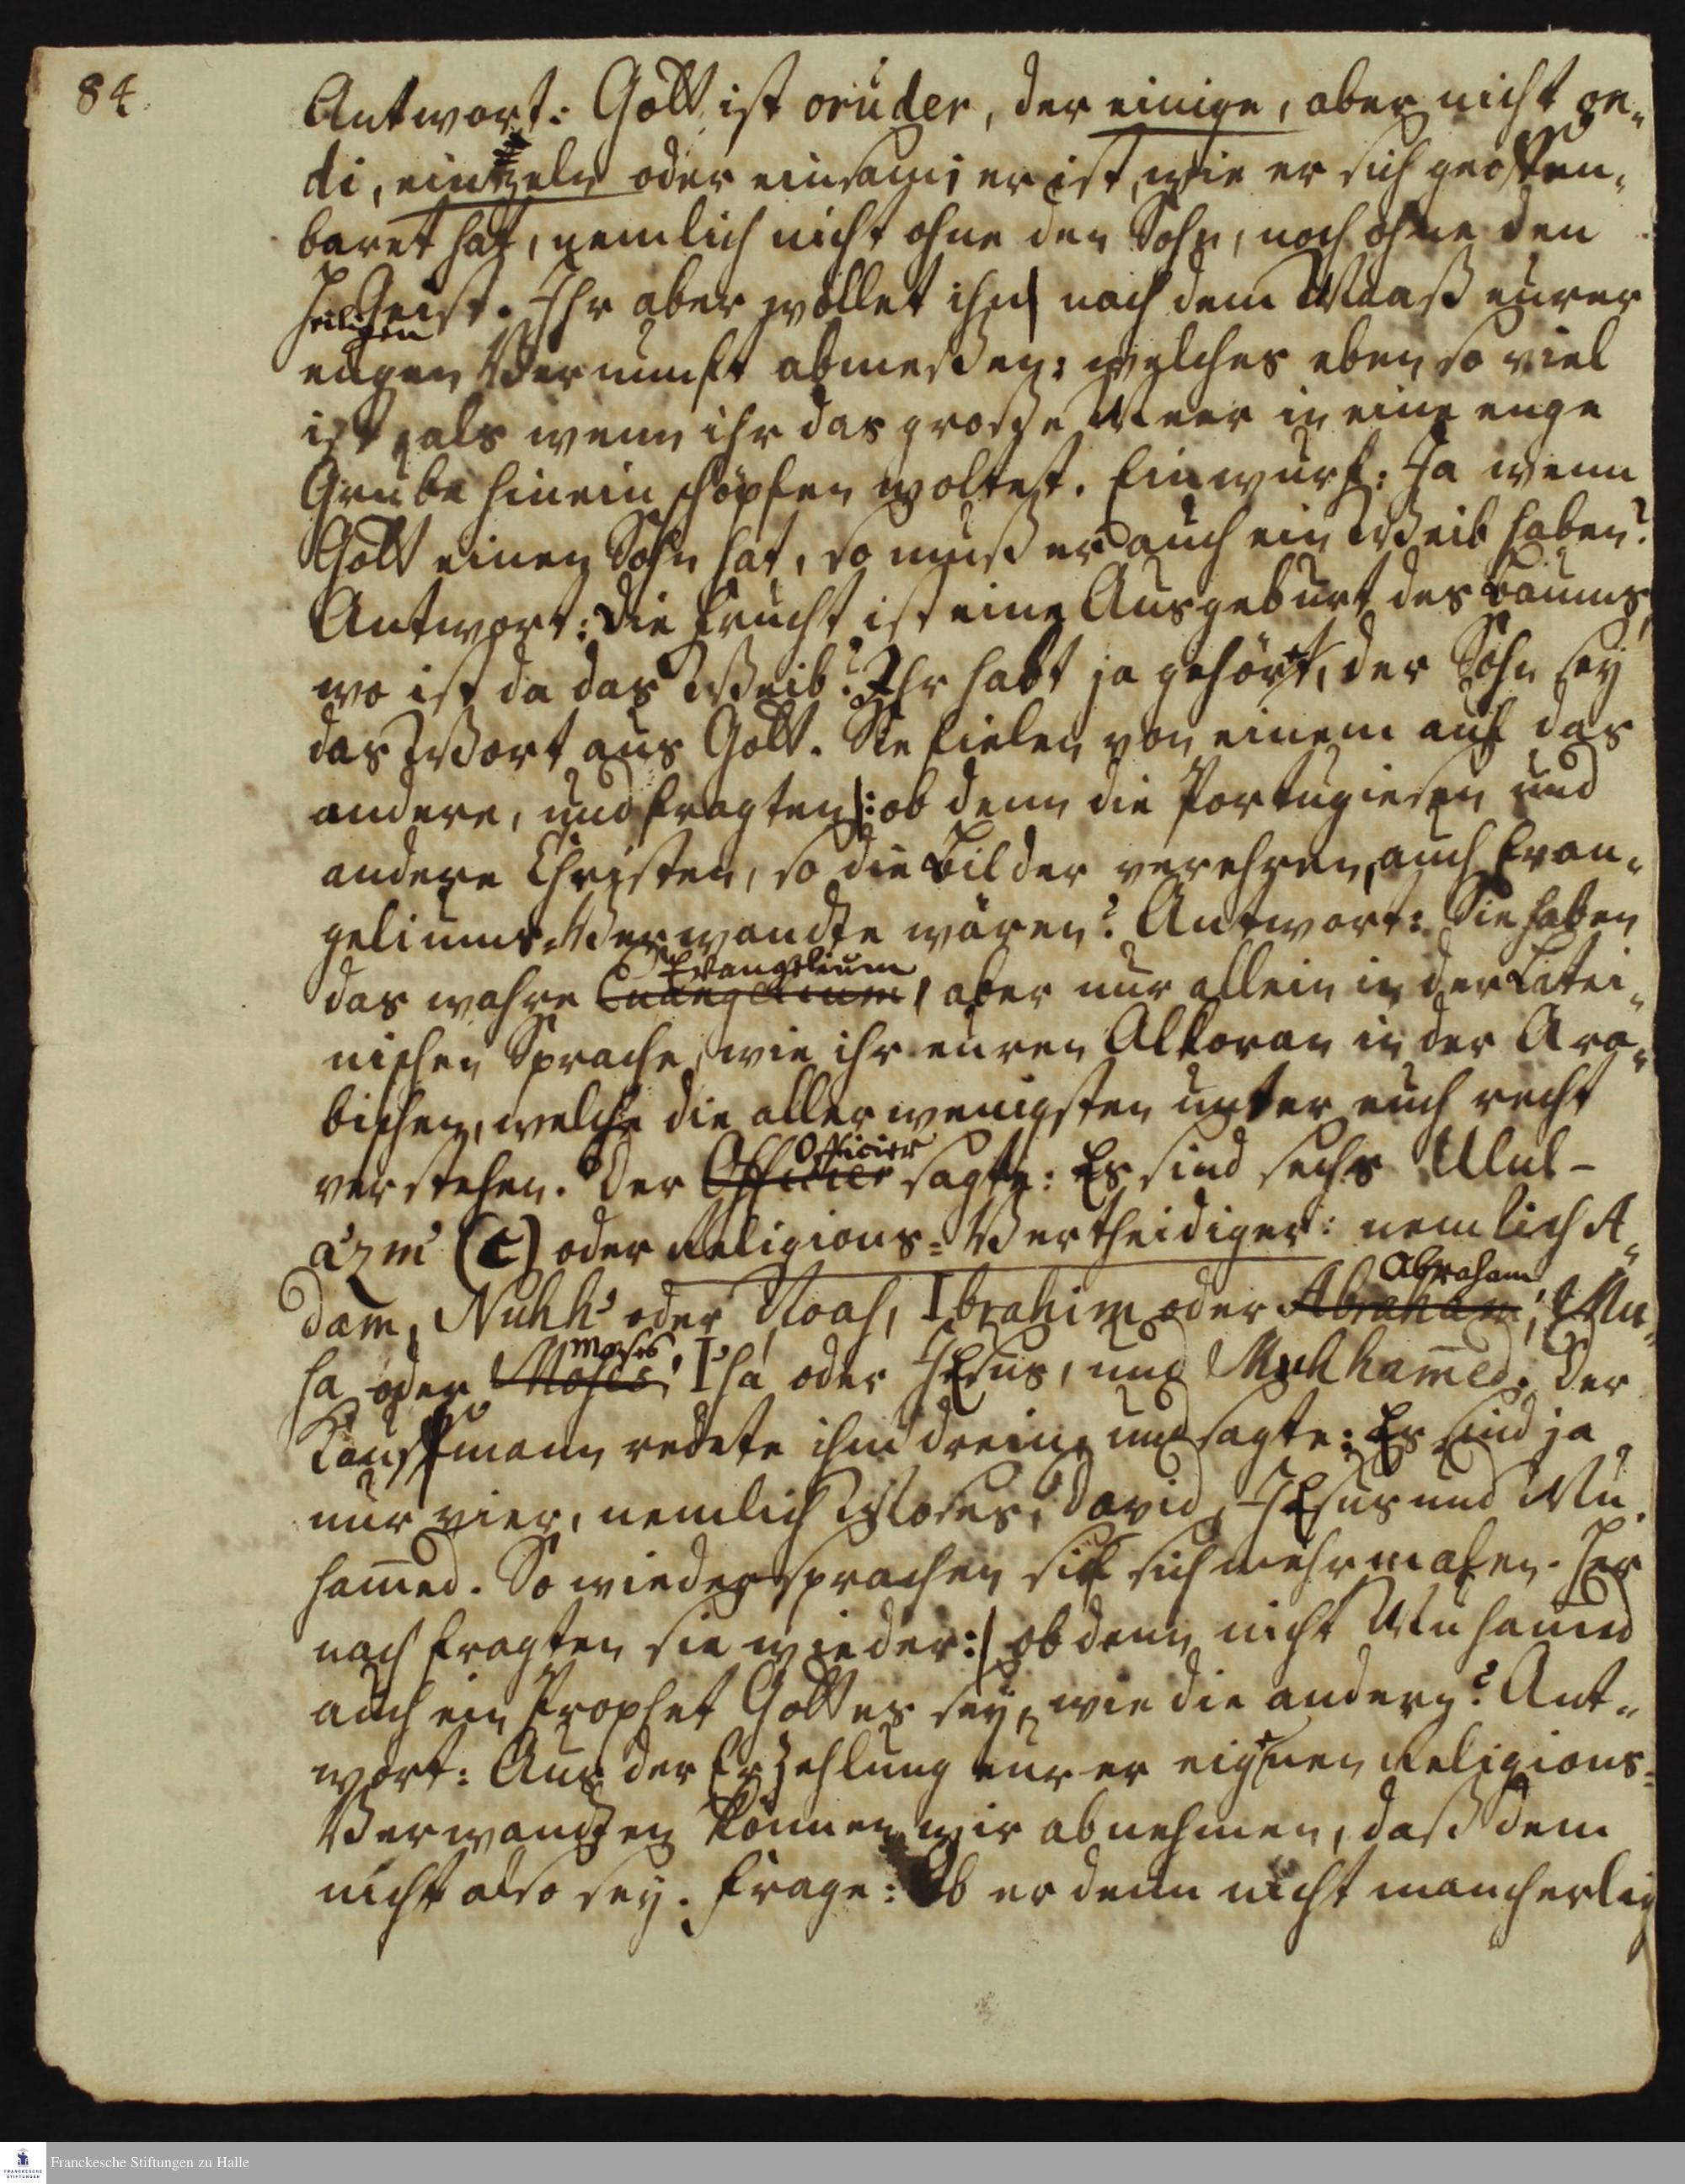 84.
Antwort: Gott ist oruder, der einige, aber nicht on-
di, eintzeln oder einsam; er ist, wie er sich geoffen-
baret hat, nemlich nicht ohne den Sohn, noch ohne den
Heiligen Geist. Ihr aber wollet ihn nach dem Maaß eurer
engen Vernunft abmeßen: welches eben so viel
ist, als wenn ihr das große Meer in eine enge
Grube hinein schöpfen woltet. Einwurf: Ja wenn
Gott einen Sohn hat, so muß er auch ein Weib haben?
Antwort: Die Frucht ist eine Ausgeburt des Baums,
wo ist da das Weib? Ihr habt ja gehört, der Sohn sey
das Wort aus Gott. Sie fielen von einem auf das
andere, und fragten: ob denn die Portugiesen und
andere Christen, so die Bilder verehren, auch Evan-
geliums-Verwandte wären? Antwort: Sie haben
das wahre Euangelium Evangelium, aber nur allein in der Latei-
nischen Sprache, wie ihr euren Alkoran in der Ara-
bischen, welche die allerwenigsten unter euch recht
verstehen. Der Officier Officier sagte: Es sind sechs Ulul-
a'zm' (c) oder Religions-Vertheidiger: nemlich A-
dam, Nuhh' oder Noah, Ibrahim oder Abraham Abraham, Mu-
sa oder Moses Moses, I'sa oder JEsus, und Muhham̄ed. Der
Kauffmann redete ihm drein, und sagte: Es sind ja
nur vier, nemlich Moses, David, JEsus und Mu-
ham̄ed. So wiedersprachen sie sich mehrmalen. Her
nach fragten sie wieder: ob denn nicht Muham̄ed
auch ein Prophet Gottes sey, wie die andern? Ant-
wort: Aus der Erzehlung eurer eignen Religions-
Verwandten können wir abnehmen, daß dem
nicht also sey. Frage: Ob er denn nicht mancherley
Franckesche Stiftungen zu Halle